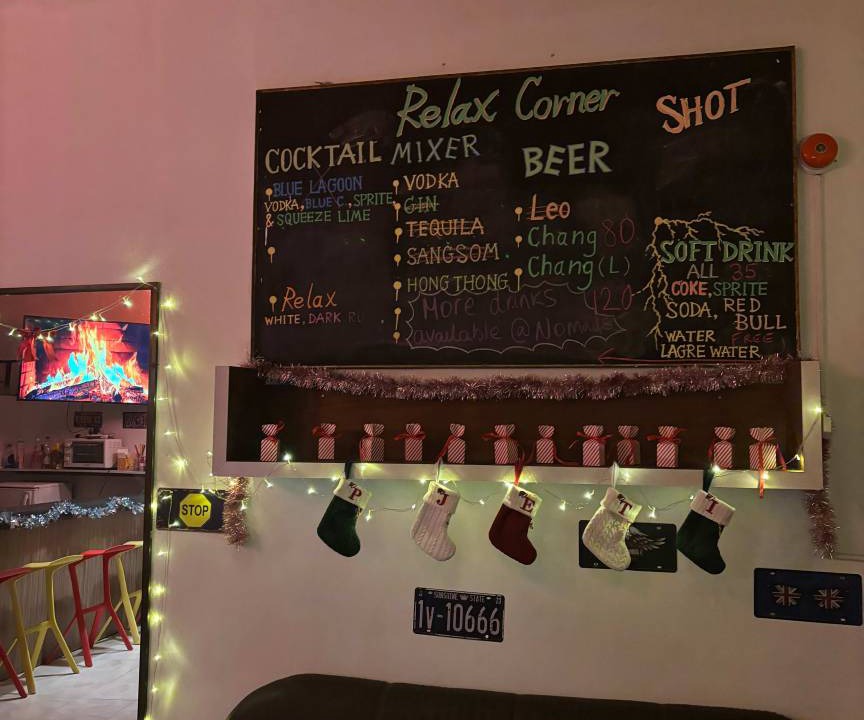 Relax Corner
SHOT
COCKTAIL
BLUE LAGOON
VODKA, BLUE C, SPRITE
& SQUEEZE LIME
Relax
WHITE, DARK
MIXER
VODKA
GIN
TEQUILA
SANGSOM
HONG THONG
More drinks
available @
BEER
Leo
Chang 80
Chang (L)
120
SOFT DRINK
ALL 35
COKE, SPRITE
SODA, RED
BULL
WATER FREE
LAGRE WATER
STOP
P
J
E
T
T
SUNSHINE STATE
1v-10666